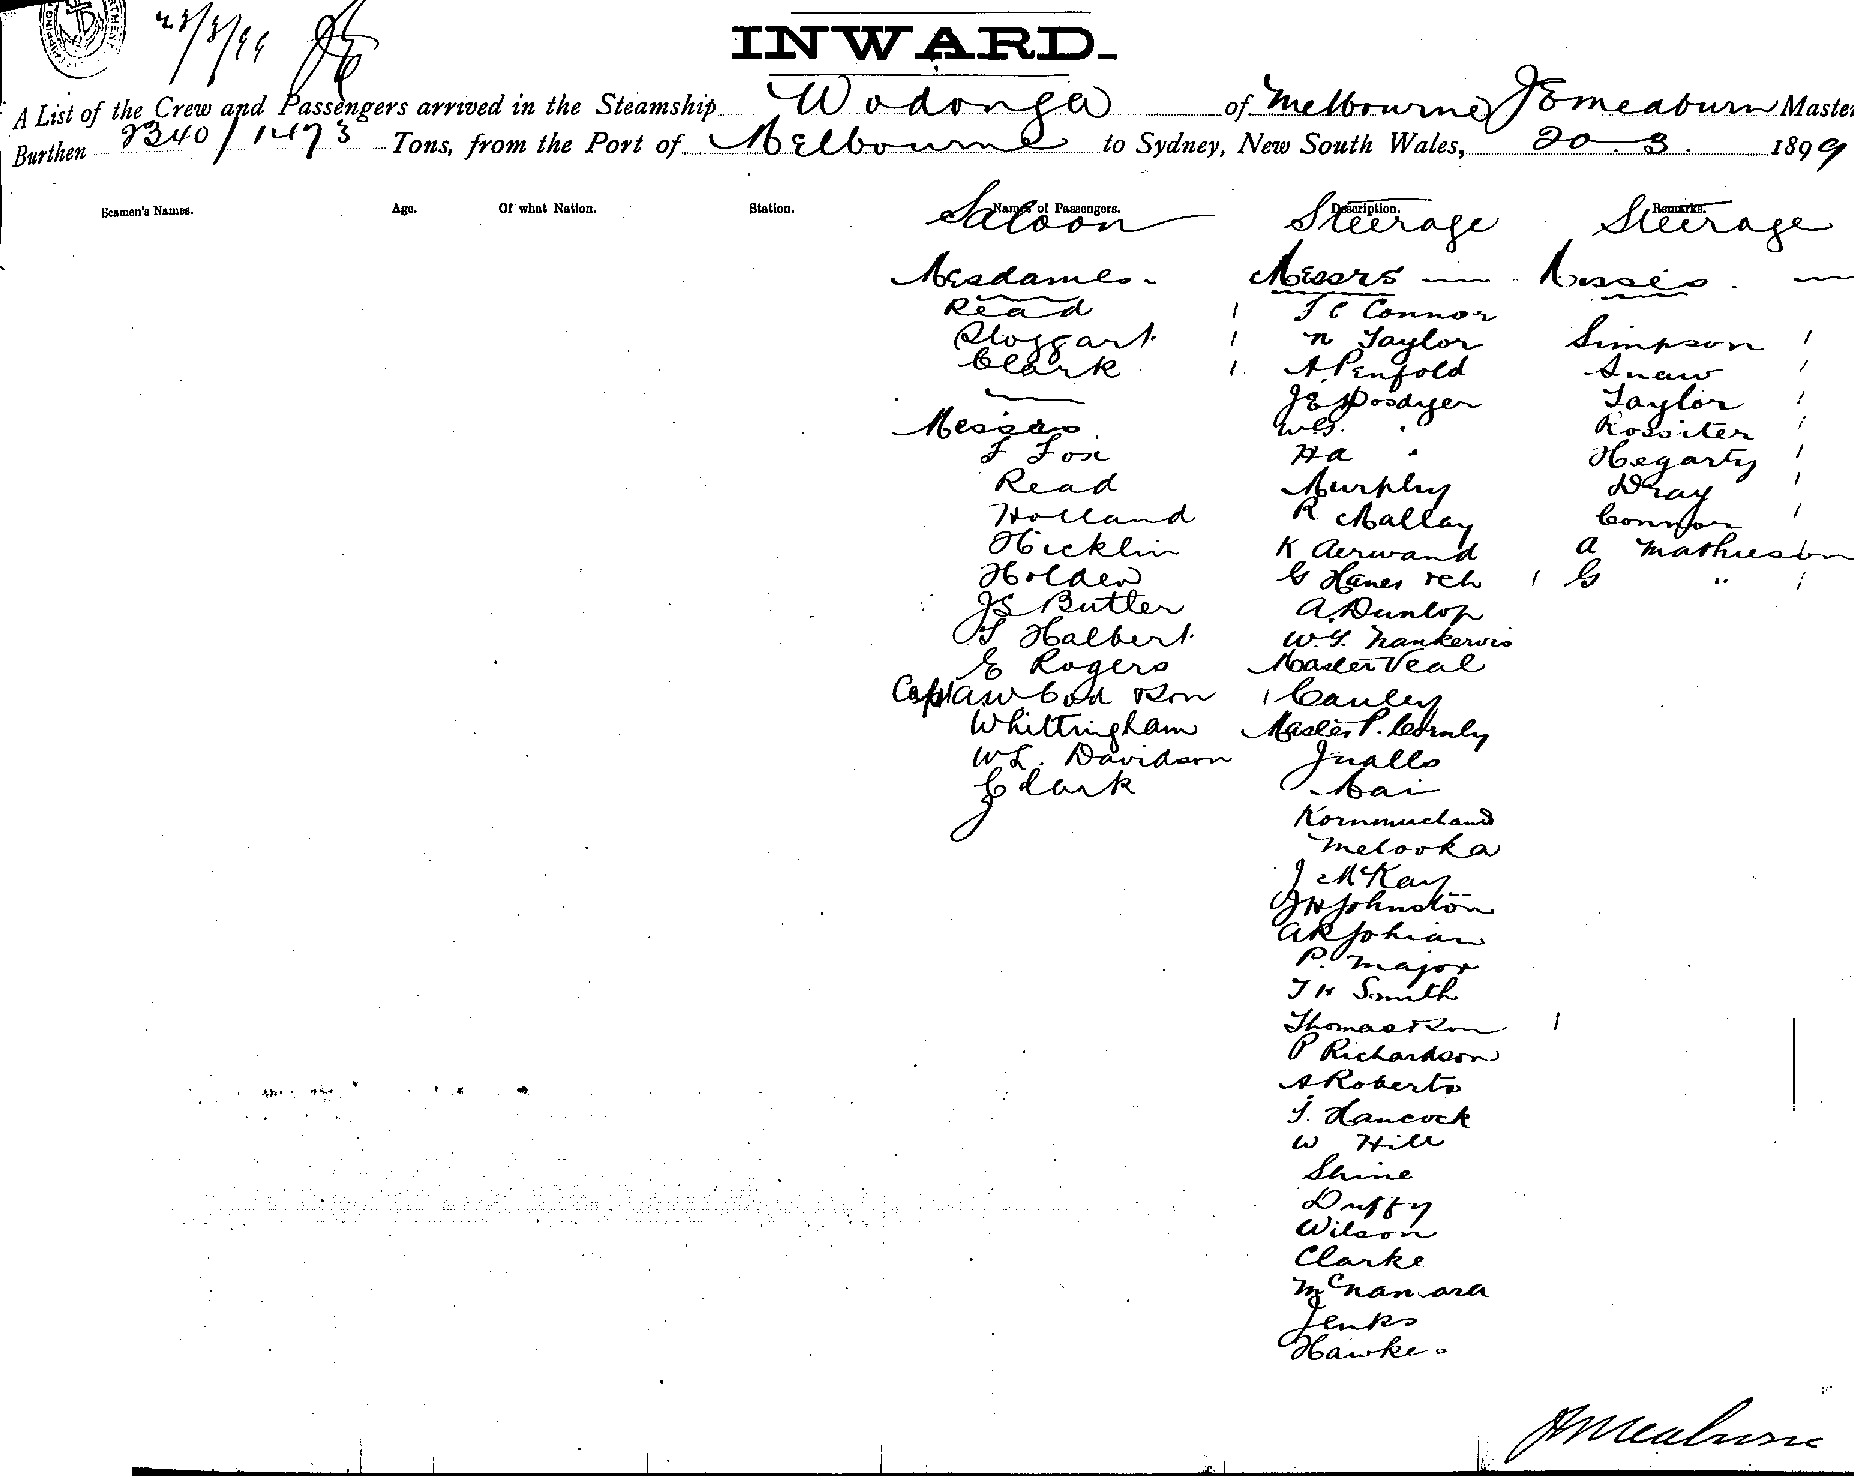 23/3/99 JE
INWARD.
A List of the Crew and Passengers arrived in the Steamship Wodonga of Melbourne J E Meaburn Master
Burthen 2340/1473 Tons, from the Port of Melbourne to Sydney, New South Wales, 20.3. 1899
Seamen's Names. Age. Of what Nation. Station. Names of Passengers. Description. Remarks.
Saloon
Mesdames
Read 1
Stoggart 1
Clark 1
Messrs
F Fox
Read
Holland
Hicklin
Holden
JS Butler
T Halbert
E Rogers
Capt AW Cod & Son 1
Whittringham
W L. Davidson
J Clark
Steerage
Messrs
T C Connor
N Taylor
A Penfold
J E Posdyer
W G. "
H a "
Murphy
R Mallay
K Aerwand
G Hanes & ch 1
A. Dunlop
W. G. Nankervis
Master Veal
Cauley
Master P. Cornly
Jualls
Mai
Kornmuchand
Melooka
J McKay
J H Johnston
A R Johian
P. Major
T H Smith
Thomas & Son 1
P Richardson
A Roberts
T. Hancock
W Hill
Shine
Duffy
Wilson
Clarke
McNamara
Jenks
Hawke
Steerage
Misses
Simpson 1
Snaw 1
Taylor 1
Rossiter 1
Hegarty 1
Dray 1
Connor 1
A Mathieson 1
G " 1
J E Meaburn